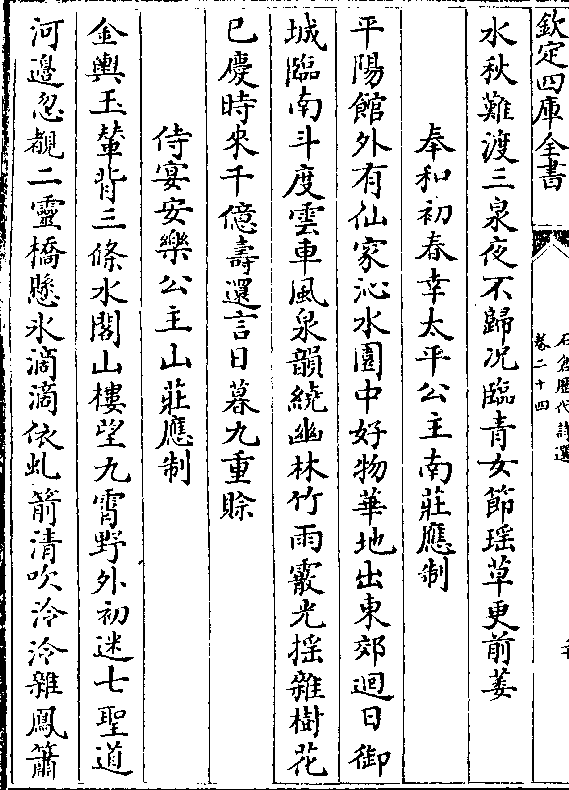 欽定四庫全書
石倉歷代詩選
卷二十四
水秋難渡三泉夜不歸况臨青女節瑶草更前萎
奉和初春幸太平公主南莊應制
平陽館外有仙家沁水園中好物華地出東郊迴日御
城臨南斗度雲車風泉韻繞幽林竹雨霰光揺雜樹花
已慶時來千億壽還言日暮九重賖
侍宴安樂公主山莊應制
金輿玉輦背三條水閣山樓望九霄野外初迷七聖道
河邊忽覩二靈橋懸氷滴滴依虬箭清吹泠泠雜鳳簫